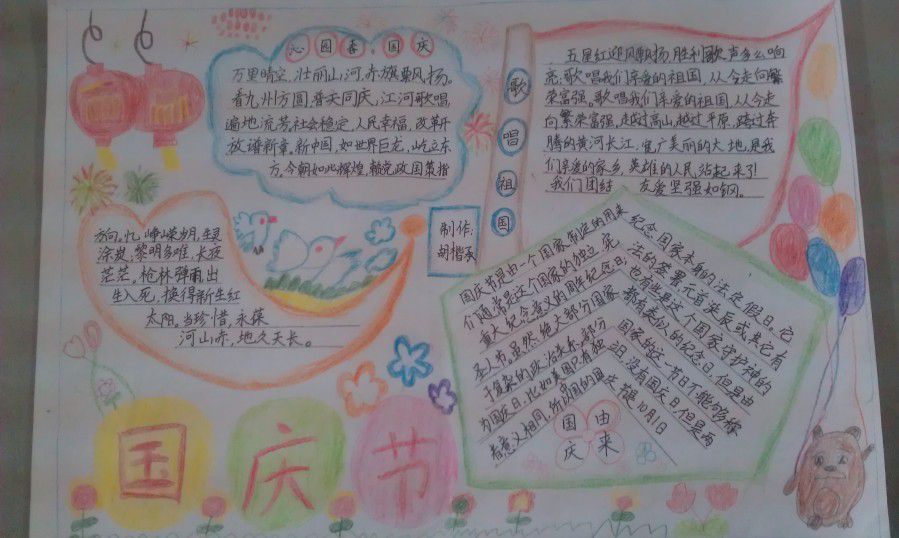 沁园春·国庆
万里晴空,壮丽山河,赤旗飘扬。
看九州方圆,普天同庆,江河歌唱,
遍地流芳,社会稳定,人民幸福,改革开
放谱新章。新中国,如世界巨龙,屹立东
方,今朝如此辉煌,赖党政国策指
方向。忆峥嵘岁月,生灵
涂炭,黎明多难,长夜
茫茫。枪林弹雨出
生入死,换得新生红
太阳。当珍惜,永葆
河山赤,地久天长。
歌唱祖国
五星红迎风飘扬,胜利歌声多么响
亮,歌唱我们亲爱的祖国,从今走向繁
荣富强。歌唱我们亲爱的祖国,从今走
向繁荣富强,越过高山,越过平原,跨过奔
腾的黄河长江,宽广美丽的大地,是我
们亲爱的家乡,英雄的人民站起来了
我们团结 友爱坚强如钢。
制作:
国庆节是由一个国家制定的用来
纪念国家本身的法定假日。它
们通常是这个国家的独立、宪
法的签署、元首诞辰或其它有
重大纪念意义的周年纪念日,
也有些是这个国家守护神的
圣人节。虽然绝大部分国家
都有类似的纪念日,但是由
于复杂的政治关系,部分
国家的这一节日不能够称
为国庆日,比如美国只有独
立日,没有国庆日,但是两
者意义相同,
庆节是10月1日
国庆
由来
国庆节